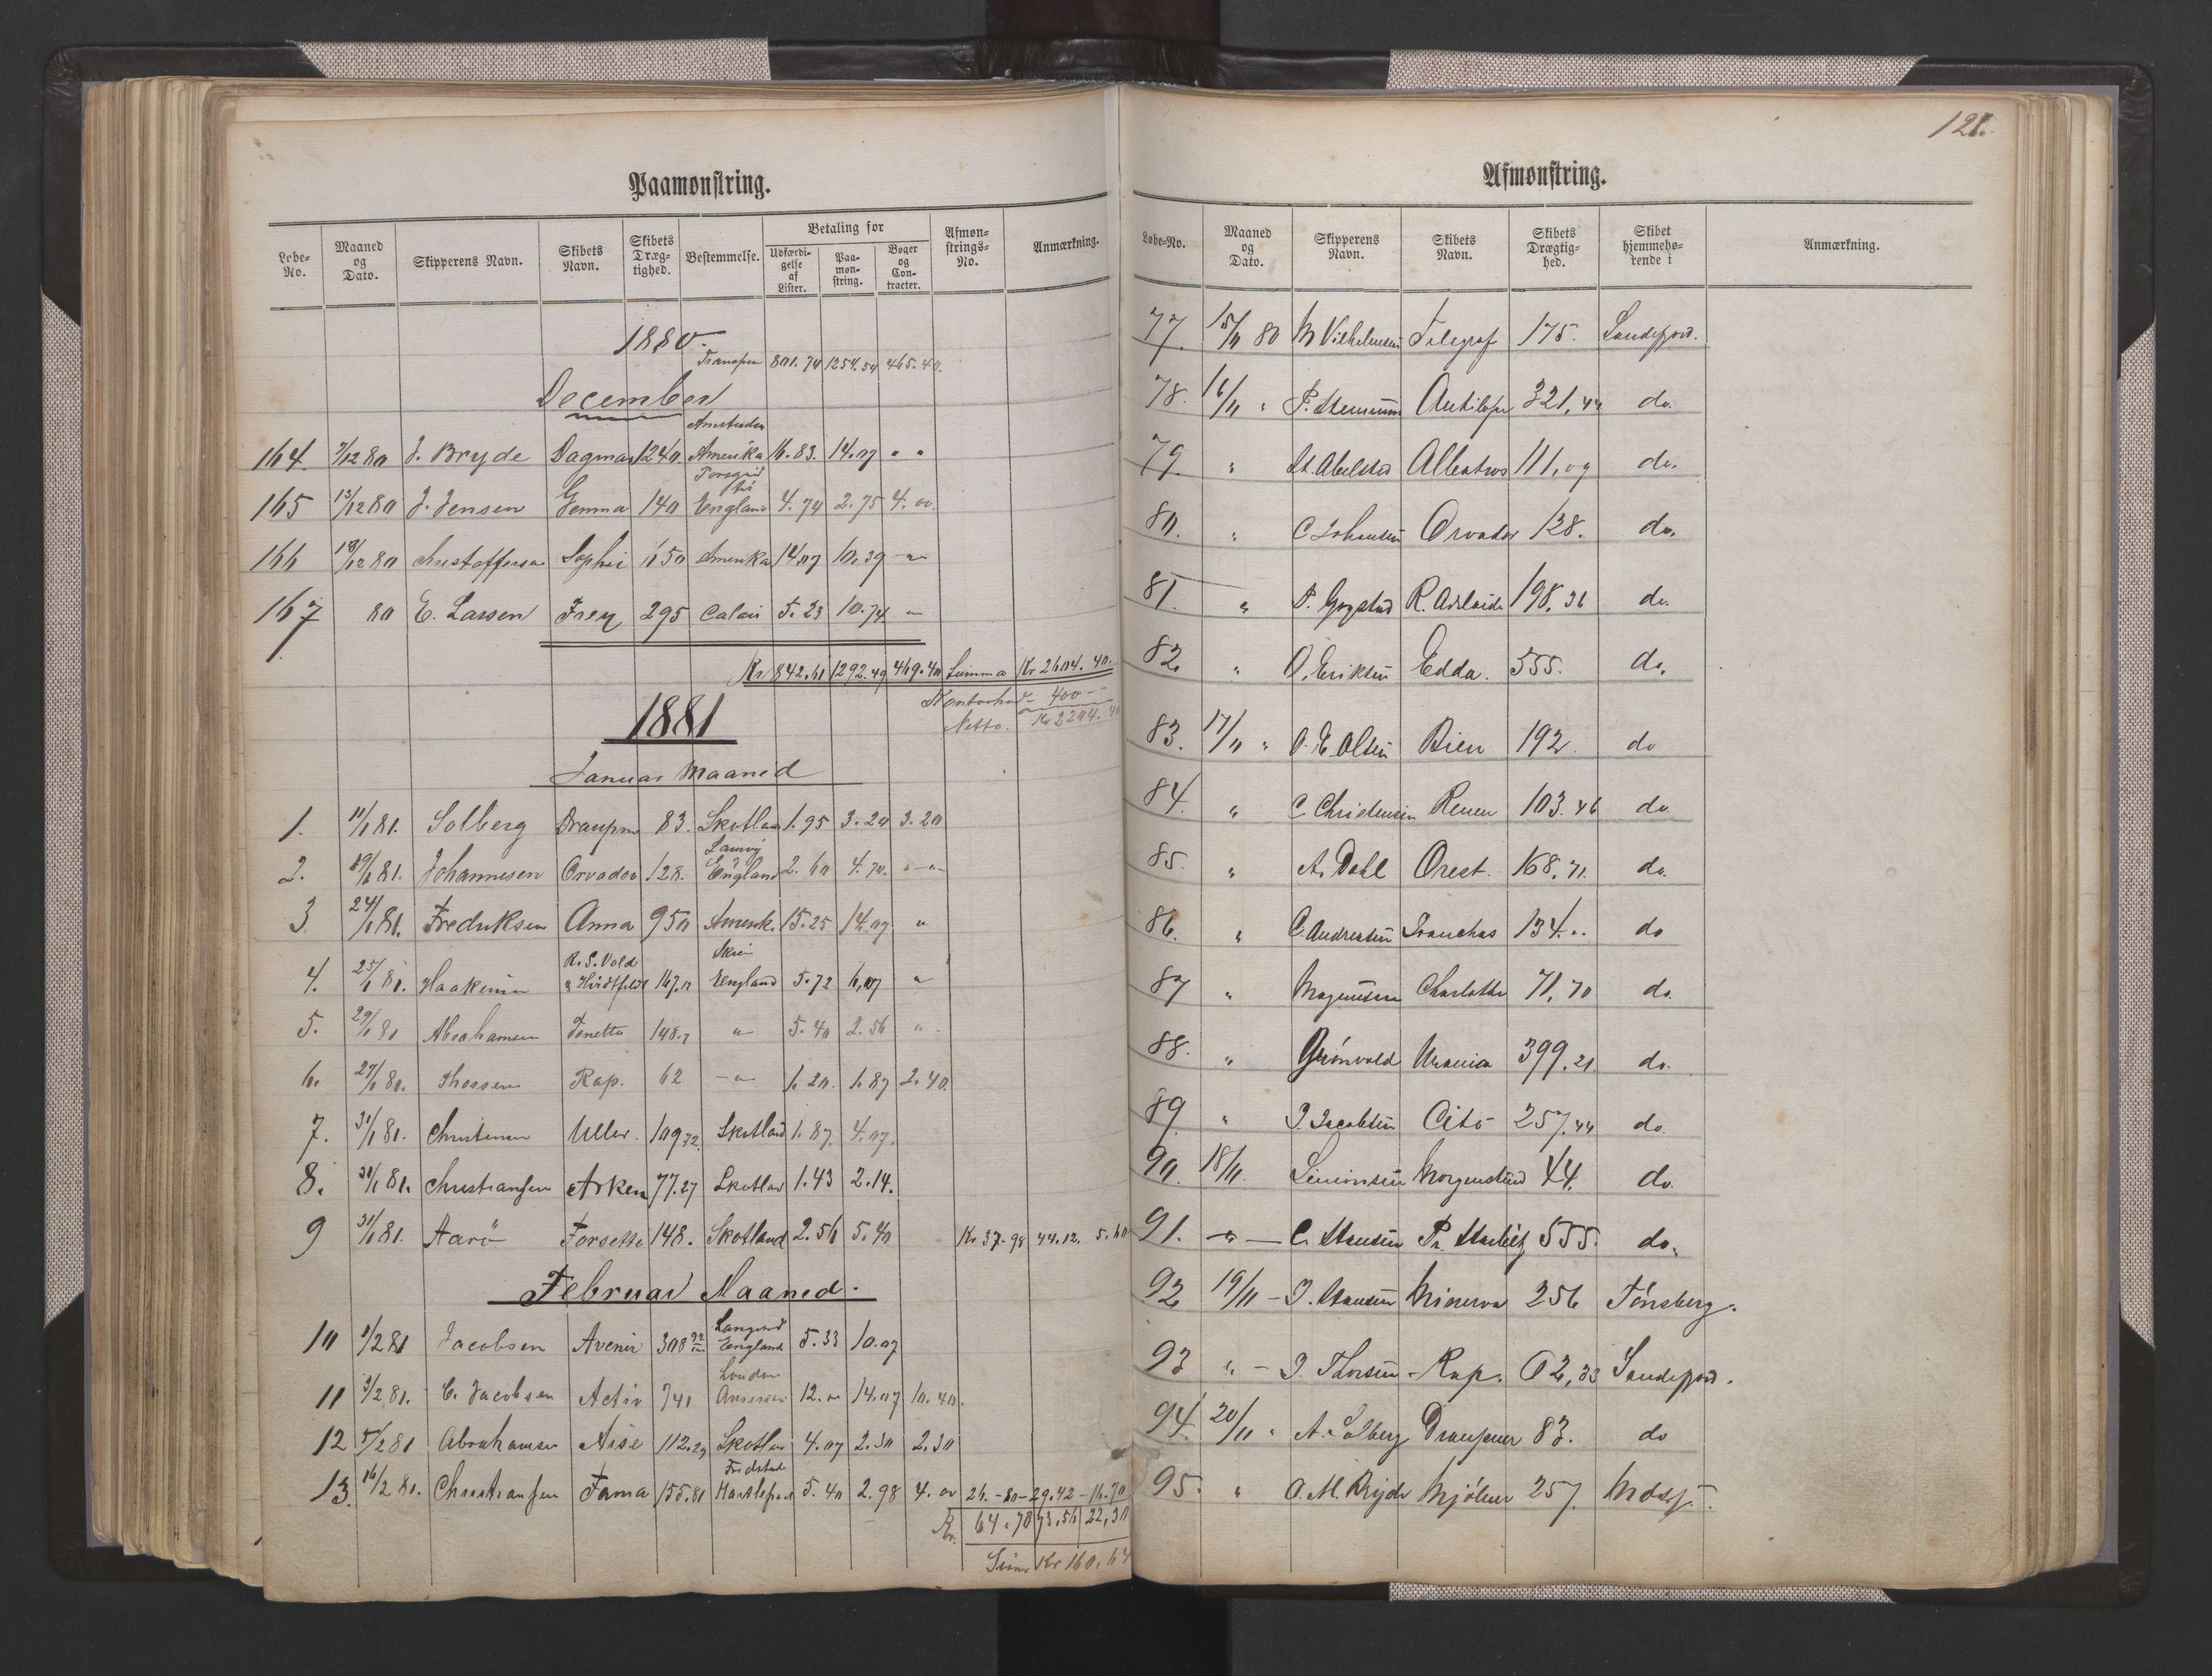 Paamønstring.
Løbe-No. Maaned og Dato. Skipperens Navn. Skibets Navn. Skibets Dræg-tighed. Bestemmelse. Betaling for Udfærdi-gelse af Lister. Paa-møn-string. Bøger og Con-tracter. Afmøn-strings-No. Anmærkning.
1880.
Transpor 801.74 1254.54 465.40.
December
Amsterdam
164. 7/12 80 J. Bryde Dagmar 1240. Amerika 16.83. 14.07 " "
165 13/12 80 J. Jensen Gemma 140 England 4.74 2.75 4.00.
166 18/12 80 Christoffersen Sophie 650 Amerika 14.07 10.39 -"-
167 80 E. Larsen Frey 295 Calais 5.23 10.74. "
Kr 842.61 1292.49 469.40 Summa Kr 2604.40.
Kontorhold - 400 --
Netto. Kr 2204.40
1881
Januar Maaned
1. 11/1 81. Solberg Draupner 83. Skotland 1.95 3.20 3.20
Laurvig
2. 19/1 81. Johannesen Orvador 128. England 2.60 4.70. "-"-
3 24/1 81. Fredriksen Anna 950 Amerik. 15.25 14.07. "
K. S. Vold Skien
4. 25/1 81. Haakensen & Hvidtfeldt 167.0 England 5.72 6.07 "
5. 29/1 80 Abrahamsen Tenetta 148.7 " 5.40 2.56 "
6. 27/1 80. Thorsen Rap. 62 -"- 1.20. 1.87 2.40.
7. 31/1 81. Christensen Uller. 109.72. Skotland 1.87. 4.07.
8. 31/1 81. Christiansen Arken 77.27 Skotland 1.43 2.14.
9 31/1 81. Aarö Forsette 148. Skotland 2.56 5.40 Kr 37.98 44.12. 5.60
Februar Maaned.
Langesund
10 1/2 81 Jacobsen Avenir 308 22 England 5.33 10.07
London
11 3/2 81. C. Jacobsen Activ 741 12." 14.07 10.40.
12 5/2 81 Abrahamsen Aise 112.29 Skotland 4.07 2.30 2.30
Fredstad
13. 16/2 81. Christiansen Fama 155.81 Hartlepool 5.40 2.98 4.00 26.-80-29.42-16.70
Kr. 64.78 73.56 22.30
Sum Kr 160.64
121.
Afmønstring.
Løbe-No. Maaned og Dato. Skipperens Navn. Skibets Navn. Skibets Drægtig-hed. Skibet hjemmehø-rende i Anmærkning.
77. 15/11 80 M Vilhelmsen Telegraf 175. Sandefjord.
78. 16/11 " P. Hemmum Antilope 321,44 do.
79. " H. Abelsted Albatros 111,09 do.
80. " C Johansen Orvador 128. do.
81. " P. Gogstad R. Adelaide 198.36 do.
82. " O. Eriksen Edda. 555. do.
83. 17/11 " O. E. Olsen Bien 192. do
84. " C Christensen Renen 103.46 do.
85. " A. Dahl Orest. 168,71. do.
86. " C. Andreasen Sanchos 134." do
87 " Magnussen Charlotte 71,70 do.
88. " Grönvold Urania 399.21 do.
89. " J. Jacobsen Cito 257,44 do.
90. 18/11. Simonsen Morgenstund 44. do.
91. -"- C. Hansen Pr. Harbitz 555. do.
92 19/11 - J. Hansen Minerva 256 Tönsberg.
93 " - J. Thorsen - Rap. 62,33 Sandefjord.
94. 20/11 " A. Solberg Draupner 83. do
95. " O. M. Bryde Mjölner 257. Moss.